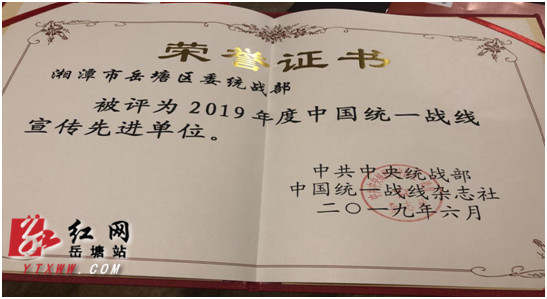 荣誉证书
湘潭市岳塘区委统战部
被评为2019年度中国统一战线
宣传先进单位。
中共中央统战部
中国统一战线杂志社
二〇一九年六月
红网
岳塘站
YTXWW.COM